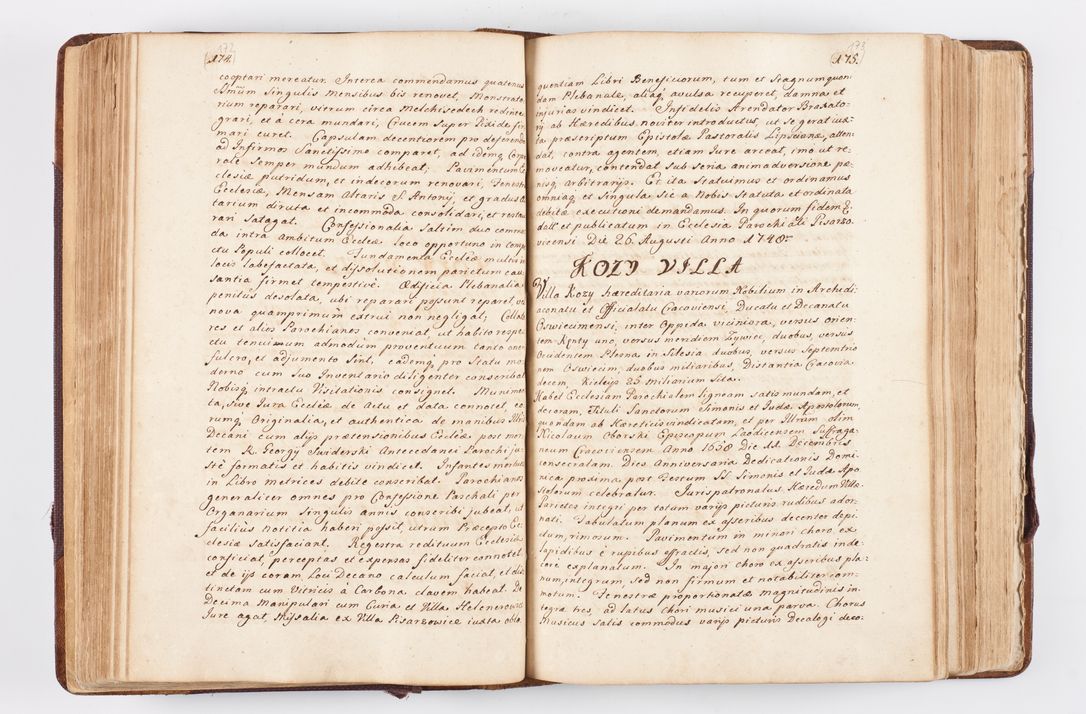 172
174.
cooptari mereatur. Interea commendamus quatenus
Smum singulis mensibus bis renovet, Monstrato-
rium reparari, vitrum circa Melchisedech redinte-
grari, et à cera mundari, Crucem super Pixide fir-
mari curet. Capsulam decentiorem pro deferendo
ad Infirmos Sanctissimo comparet, ad idemq Corpo-
role semper mundum adhibeat; Pavimentum Ec-
clesiæ putridum, et indecorum renovari, Fenestr
Ecclesiæ, Mensam Altaris S. Antonij, et gradus al-
tarium diruta et incommoda consolidari, et restau-
rari satagat. Confessionalia saltim duo commo-
da intra ambitum Eccleæ loco opportuno in conspe-
ctu Populi collocet. Fundamenta Eccleæ multis in
locis labefactata, et dissolutionem parietum cau-
santia firmet tempestive. Ædificia Plebanalia
penitus desolata, ubi reparari possunt reparet, vel
nova quamprimum extrui non negligat; Collato-
res et alios Parochianos conveniat, ut habito respe-
ctu tenuissimum admodum proventuum tanto one-
fulcro, et adjumento sint, eademq pro statu mo-
derno cum suo Inventario diligenter conscribat
Nobisq in tractu Visitationis consignet. Munimen-
ta, sive Jura Eccleæ de actu et data connotet, eo-
rumq Originalia, et authentica de manibus Illris
Decani cum alijs prætensionibus Eccleæ post mor-
tem R. Georgij Swiderski Antecedanei Parochi ju-
stè formatis et habitis vindicet. Infantes mortuos
in Libro metrices debitè conscribat. Parochianos
generaliter omnes pro Confessione Paschali per
Organarium singulis annis conscribi jubeat, ut
facilius notitia haberi possit, utrum Præcepto Ec-
clesiæ satisfaciant. Regestra redituum Ecclesiæ
conficiat, perceptas et expensas fideliter connotet
et de ijs coram Loci Decano calculum faciat, et dis-
tinctam cum Vitricis à Carbona clavem habeat. De
Decima Manipulari cum Curia et Villa Helenerowice
Jure agat, Missalia ex Villa Pisarzowice iuxta obla-
173
175.
quentiam Libri Beneficiorum, tum et stagnum quon-
dam Plebanale, aliaq avulsa recuperet, damna et
injurias vindicet. Infidelis Arendator Braxato-
rij ab Hæredibus noviter introductus, ut se gerat iux-
ta præscriptum Epistolæ Pastoralis Lipscianæ, atten-
dat, contra agentem, etiam Iure arceat, imo ut re-
moveatur, contendat sub seria animadversione pæ-
nisq arbitrarijs. Et ita statuimus et ordinamus
omniaq et singula sic à Nobis statuta et ordinata
debitæ executioni demandamus. In quorum fidem &
datt et publicatum in Ecclesia Parochiali Pisarzo-
vicensi Die 26. Augusti Anno 1748.
KOZY VILLA
Villa Kozy hæreditaria variorum Nobilium in Archidi-
aconatu et Officialatu Cracoviensi Ducatu et Decanatu
Oswiecimensi, inter Oppida viciniora, versus orien-
tem Kenty uno, versus meridiem Zywiec, duobus, versus
Occidentem Plesna in Silesia duobus, versus Septemtrio-
nem Oswiecim, duobus miliaribus, Distantia Cracovia
decem, Kielcys 25 miliarium sita.
Habet Ecclesiam Parochialem ligneam satis mundam, et
decoram, Tituli Sanctorum Simonis et Iudæ Apostolorum,
quondam ab Hæreticis vindicatam, et per Illrum olim
Nicolaum Oborski Episcopum Laodicensem Suffraga-
neum Cracoviensem Anno 1658 Die 11. Decembris
consecratam. Dies Anniversaria Dedicationis Domi-
nica proxima post Festum SS. Simonis et Iudæ Apo-
stolorum celebratur. Jurispatronatus Hæredum Villæ.
Parietes integri per totum varijs picturis rudibus ador-
nati. Tabulatum planum ex asseribus decenter depi-
ctum, rimorum. Pavimentum in minori choro ex
lapidibus è rupibus effractis, sed non quadratis inde-
core explanatum. In majori choro ex asseribus pla-
num, integrum, sed non firmum et notabiliter com-
motum. Fenestræ proportionatæ magnitudinis in-
tegræ tres, ad latus Chori musici una parva. Chorus
Musicus satis commodus varijs picturis Decalogi deco-